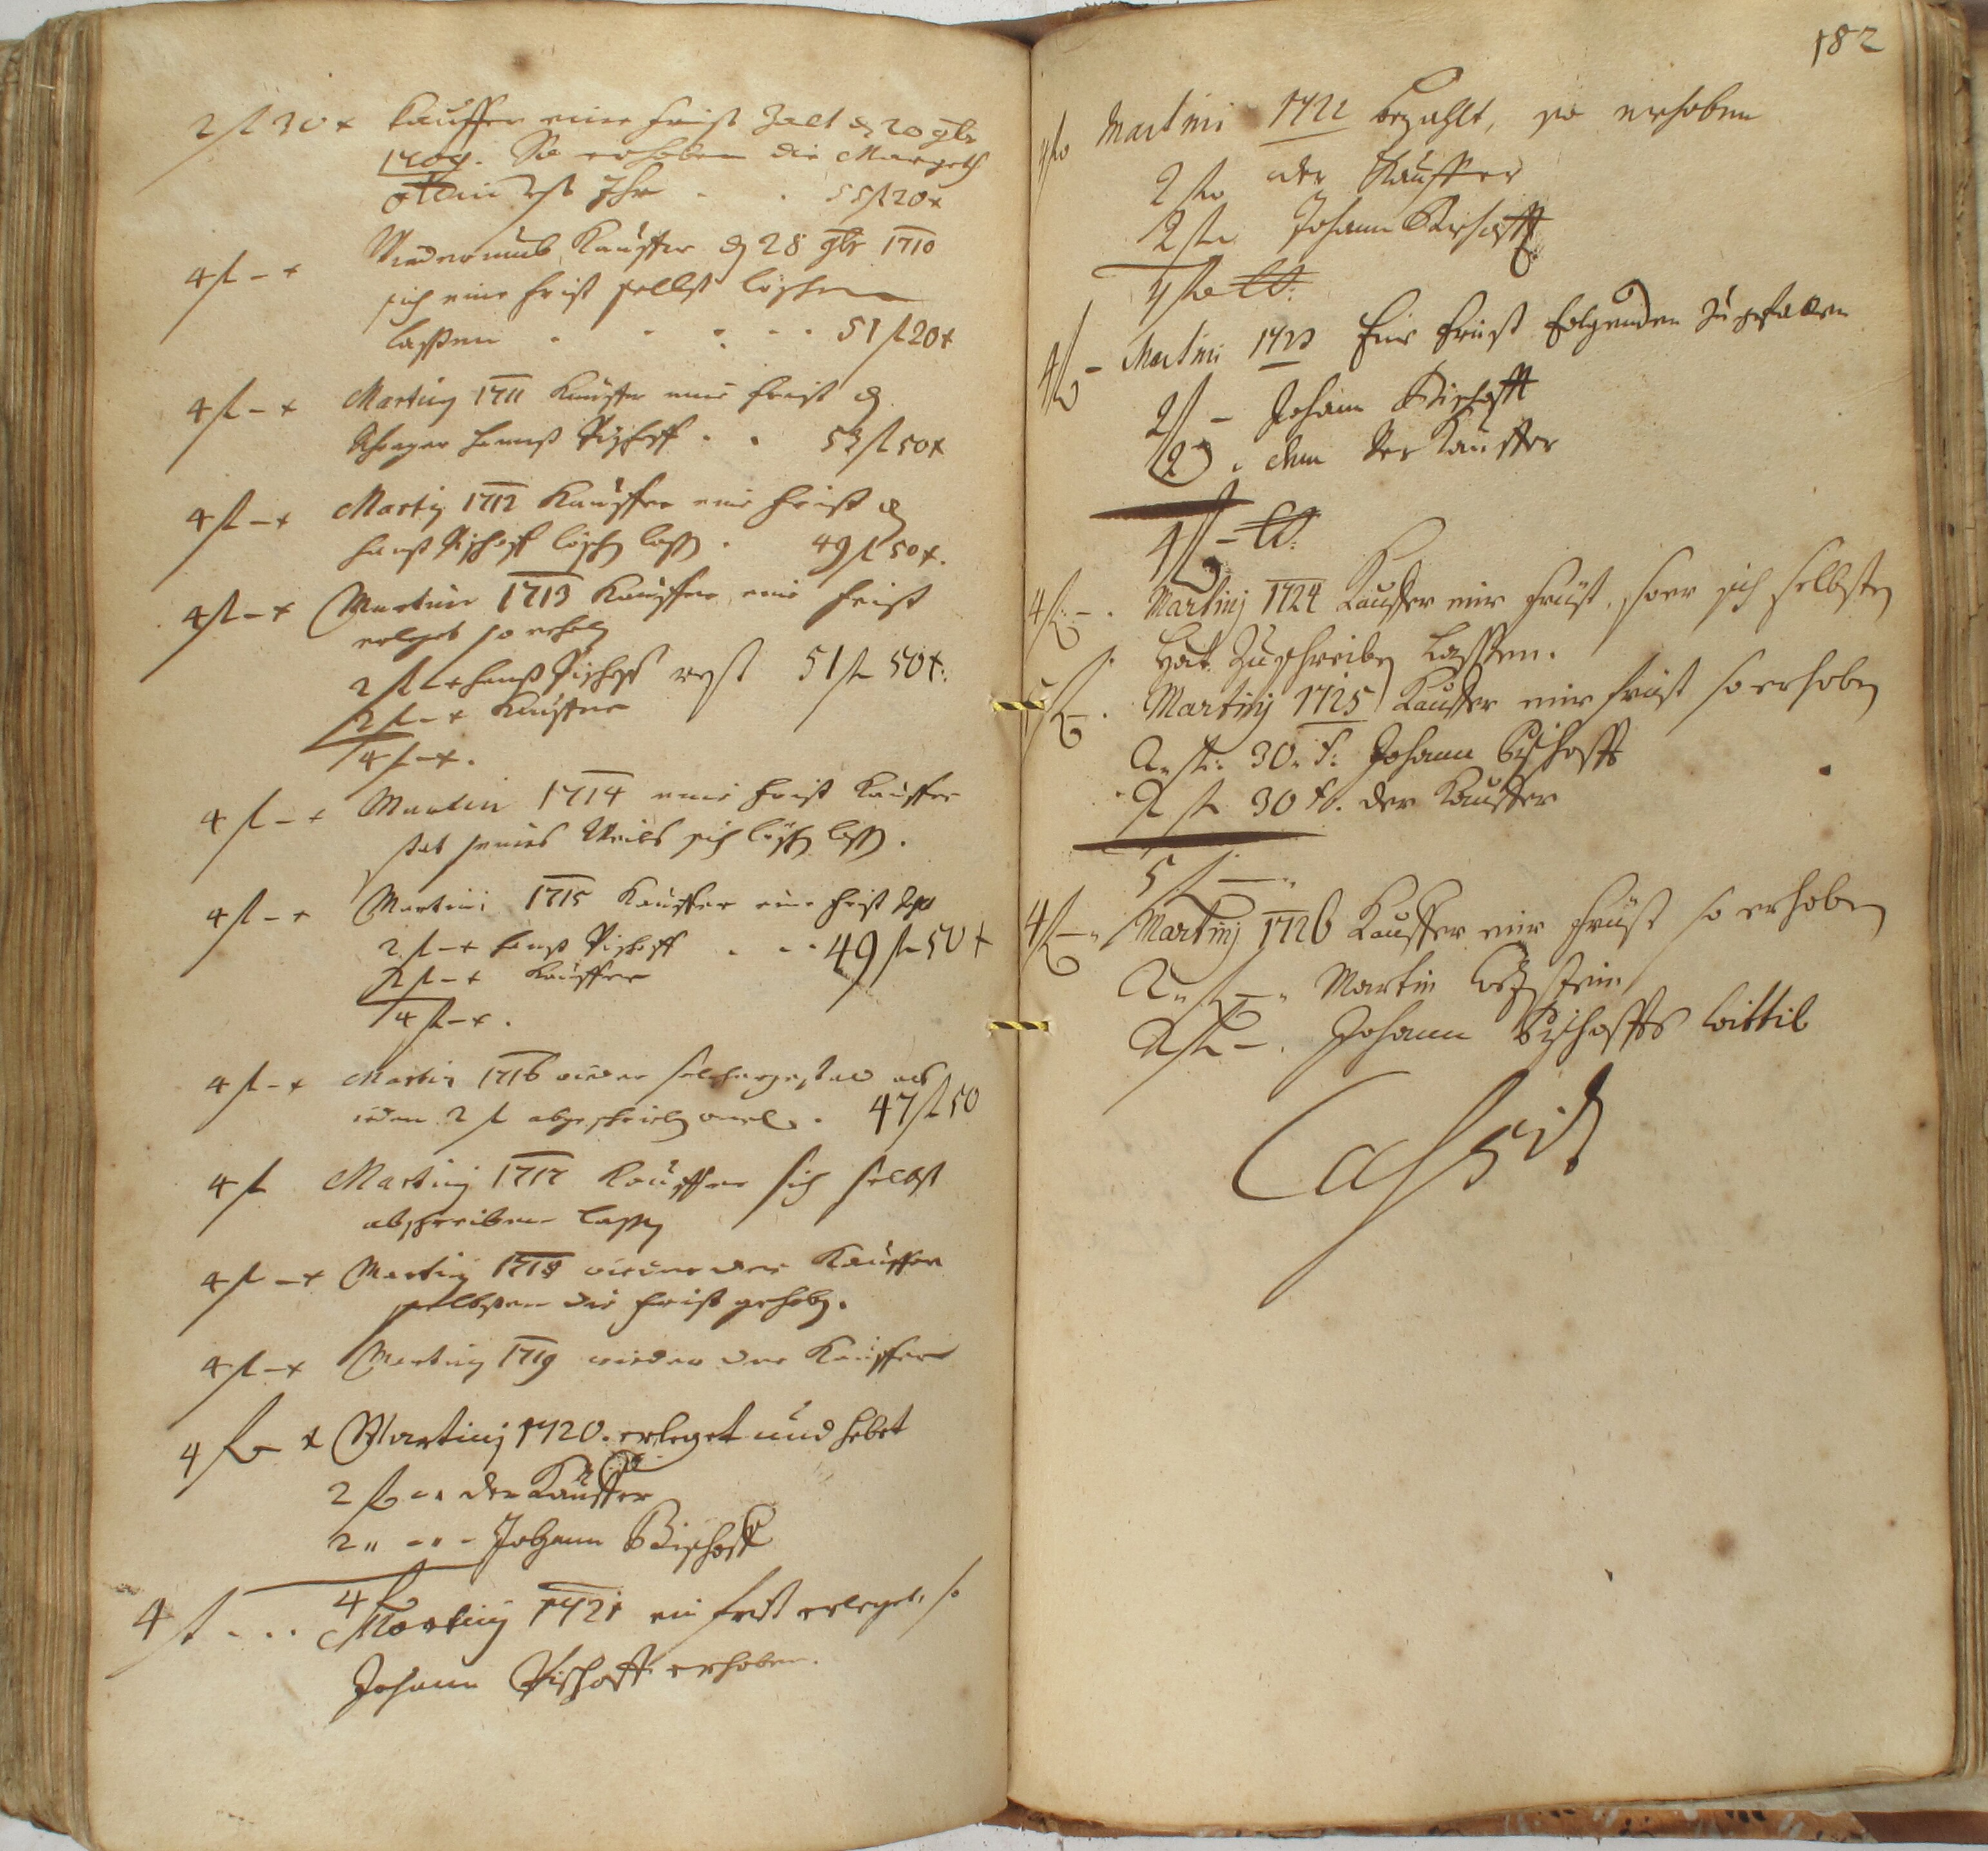 2 fl 30 x Kauffer eine Frist Zalt d 20 9br
1709. So erhoben die Margeth
rest Ihr . . 55 fl 20 x
4 fl - x Kauffer d 28 9br 1710
sich eine Frist selbst löschen
lassen . . . . . 51 fl 20 x
4 fl - x Martinj 1711 Kauffer eine Frist d
Schwager Hanß Bischoff . . 53 fl 50 x
4 fl - x Martinj 1712 Kauffer eine Frist d
Hanß Bischoff löschen lassen . 49 fl 50 x.
4 fl - x Martini 1713 Kauffer eine Frist
erleget so erheben
2 fl - x Hanß Bischoff rest 51 fl 50 x.
2 fl - x Kauffer
4 fl - x.
4 fl - x Martini 1714 eine Frist Kauffer
seines Weibs sich löschen lassen.
4 fl - x Martini 1715 Kauffer eine Frist
2 fl - x Hanß Bischoff . . . 49 fl 50 x
2 fl - x Kauffer
4 fl - x.
4 fl - x Martin 1716 wieder solchergestalt
ieden 2 fl abgeschrieben . 47 fl 50
4 fl Martinj 1717 Kauffer sich selbst
abschreiben lassen
4 fl - x Martinj 1718 wieder der Kauffer
selbsten die Frist gehoben.
4 fl - x Martinj 1719 wieder der Kauffer
4 fl x Martinj 1720. erleget und hebet
2 fl " der Kauffer
2 " - " - Johann Bischoff
4 fl
4 fl - . . Martinj 1721 ein frist erleget, so
Johann Bischoff erhoben.
182
4 fl Martini 1722 bezahlt, so erhoben
2 fl der Kauffer
2 fl Johann Bischoff
4 fl
4 fl - Martini 1723 Eine Frist folgenden zugefallen
2 fl - Johann Bischofft
2 fl . dem Verkauffer
4 fl -
4 fl - . Martinj 1724 Kauffer eine Früst, so er sich selbsten
hat Zuschreiben Lassen.
5 fl - . Martinj 1725 Kauffer eine Früst so erhoben
2 fl: 30. x: Johann Bischoffs
2 fl 30 x. der Kauffer
5 fl - "
4 fl - " Martinj 1726 Kauffer eine Früst so erhoben
2 " fl - " Martin
2 fl - . Johann Bischoffs Wittib
Cassirt